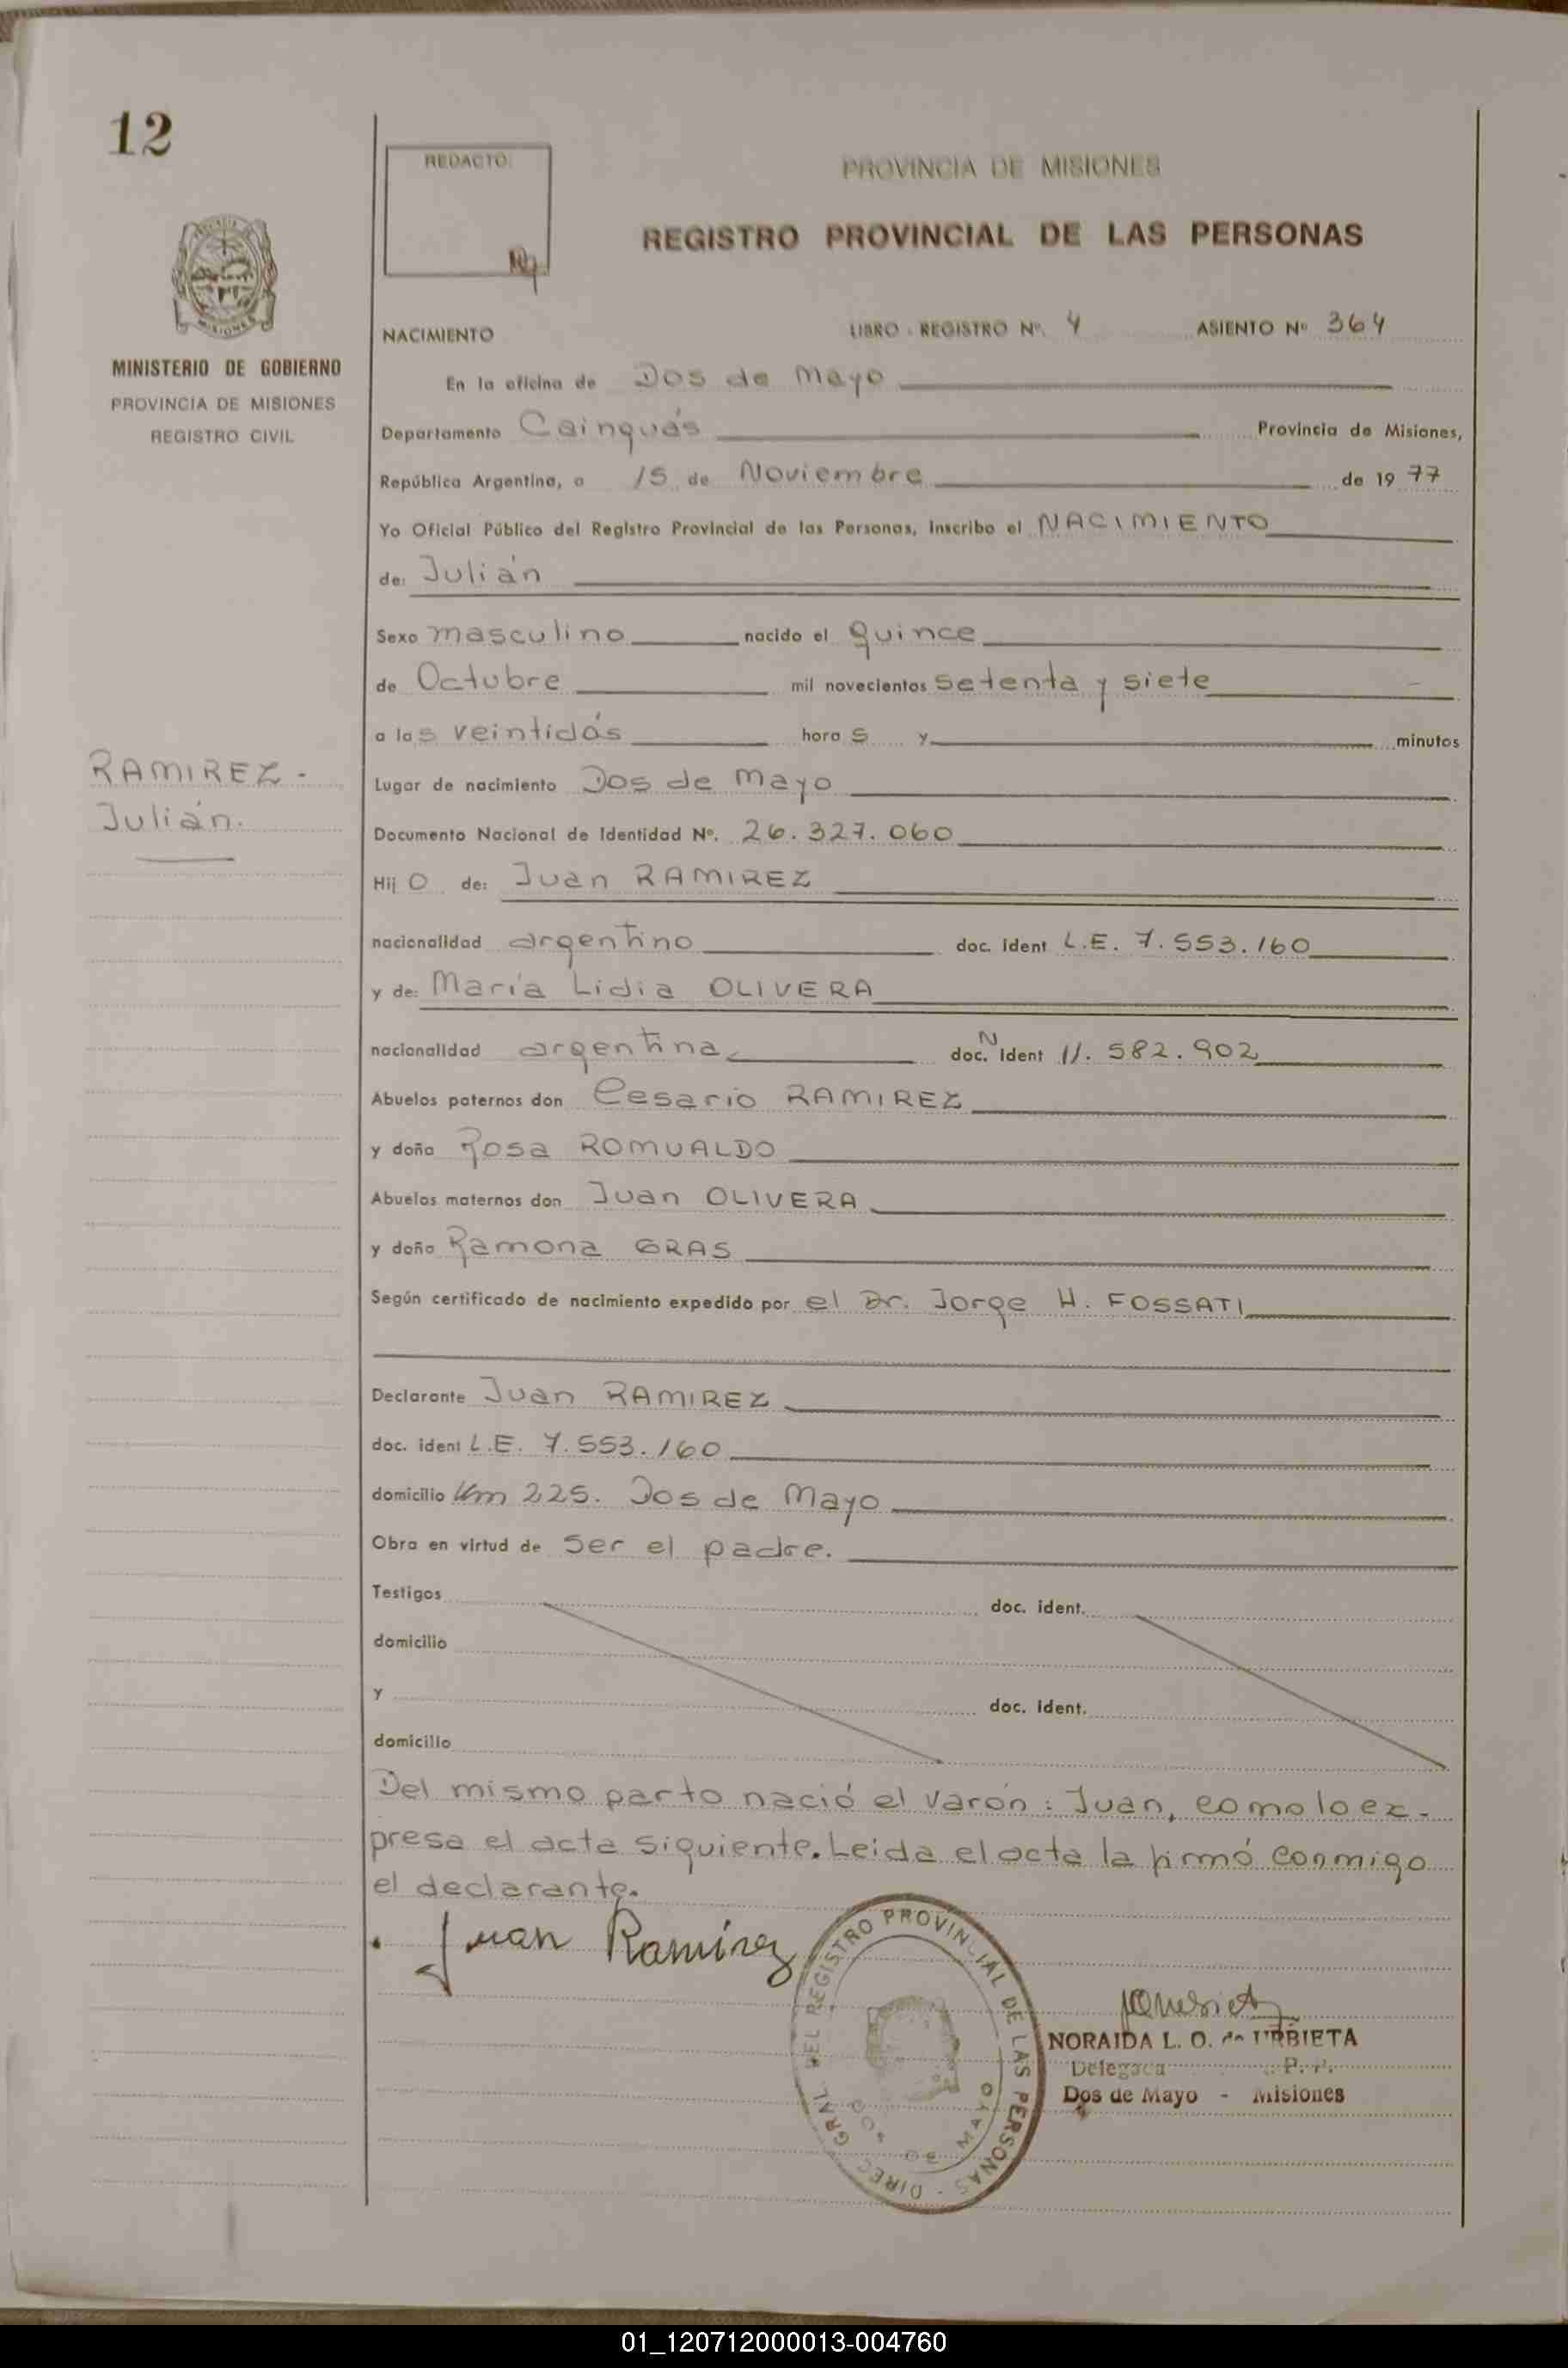 12
REDACTO:
PROVINCIA DE MISIONES
REGISTRO PROVINCIAL DE LAS PERSONAS
MISIONES
MINISTERIO DE GOBIERNO
PROVINCIA DE MISIONES
REGISTRO CIVIL
NACIMIENTO LIBRO - REGISTRO Nº. 4 ASIENTO Nº 364
En la oficina de Dos de Mayo
Departamento Cainguás Provincia de Misiones,
República Argentina, a 15 de Noviembre de 19 77
Yo Oficial Público del Registro Provincial de las Personas, inscribo el NACIMIENTO
de: Julián
Sexo masculino nacido el quince
de Octubre mil novecientos setenta y siete
a las veintidós hora s y minutos
RAMIREZ -
Julián.
Lugar de nacimiento Dos de Mayo
Documento Nacional de Identidad Nº. 26.327.060
Hij o de: Juan RAMIREZ
nacionalidad argentino doc. ident L.E. 7.553.160
y de: María Lidia OLIVERA
nacionalidad argentina doc. N ident 11.582.902
Abuelos paternos don Cesario RAMIREZ
y doña Rosa ROMUALDO
Abuelos maternos don Juan OLIVERA
y doña Ramona GRAS
Según certificado de nacimiento expedido por el Dr. Jorge H. FOSSATI
Declarante Juan RAMIREZ
doc. ident L.E. 7.553.160
domicilio Km 225. Dos de Mayo
Obra en virtud de ser el padre.
Testigos doc. ident.
domicilio
y doc. ident.
domicilio
Del mismo parto nació el varón: Juan, como lo ex-
presa el acta siguiente. Leida el acta la firmó conmigo
el declarante.
Juan Ramírez
DIREC. GRAL. DEL REGISTRO PROVINCIAL DE LAS PERSONAS -
DOS DE MAYO
NORAIDA L. O. de URBIETA
Delegada P. P.
Dos de Mayo - Misiones
01_120712000013-004760